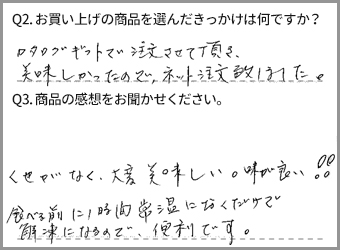 Q2. お買い上げの商品を選んだきっかけは何ですか？
カタログギフトで注文させて頂き、
美味しかったので、ネット注文致しました。
Q3. 商品の感想をお聞かせください。
くせがなく、大変美味しい。味が良い!!
食べる前に1時間常温におくだけで
解凍になるので、便利です。